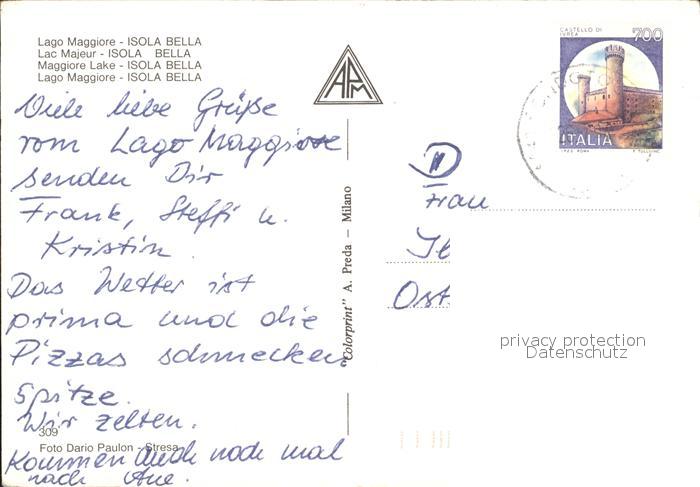 Lago Maggiore - ISOLA BELLA
Lac Majeur - ISOLA BELLA
Maggiore Lake - ISOLA BELLA
Lago Maggiore - ISOLA BELLA
Viele liebe Grüße
vom Lago Maggiore
senden Dir
Frank, Steffi u.
Kristin.
Das Wetter ist
prima und die
Pizzas schmecken
Spitze.
Wir zelten.
309
Foto Dario Paulon - Stresa
Kommen auch noch mal
nach Aue.
APM
"Colorprint" A. Preda – Milano
CASTELLO DI
IVREA
700
ITALIA
D
Frau
Ost
privacy protection
Datenschutz